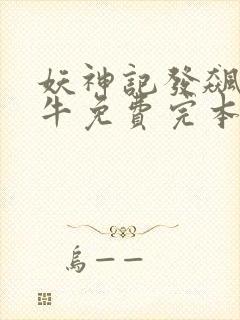 妖神記發飆
牛免費完本
烏——